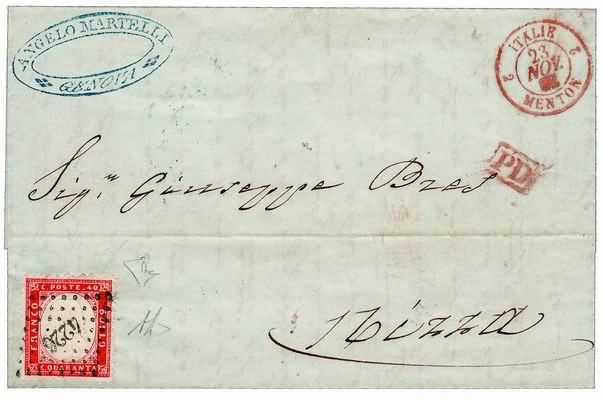 ANGELO MARTELLI
GENOVA
ITALIE
2 2
23
NOV.
MENTON
PD
Sig.re Giuseppe Bres
C. POSTE. 40
FRANCO
BOLLO
C. QUARANTA
4222
Nizza